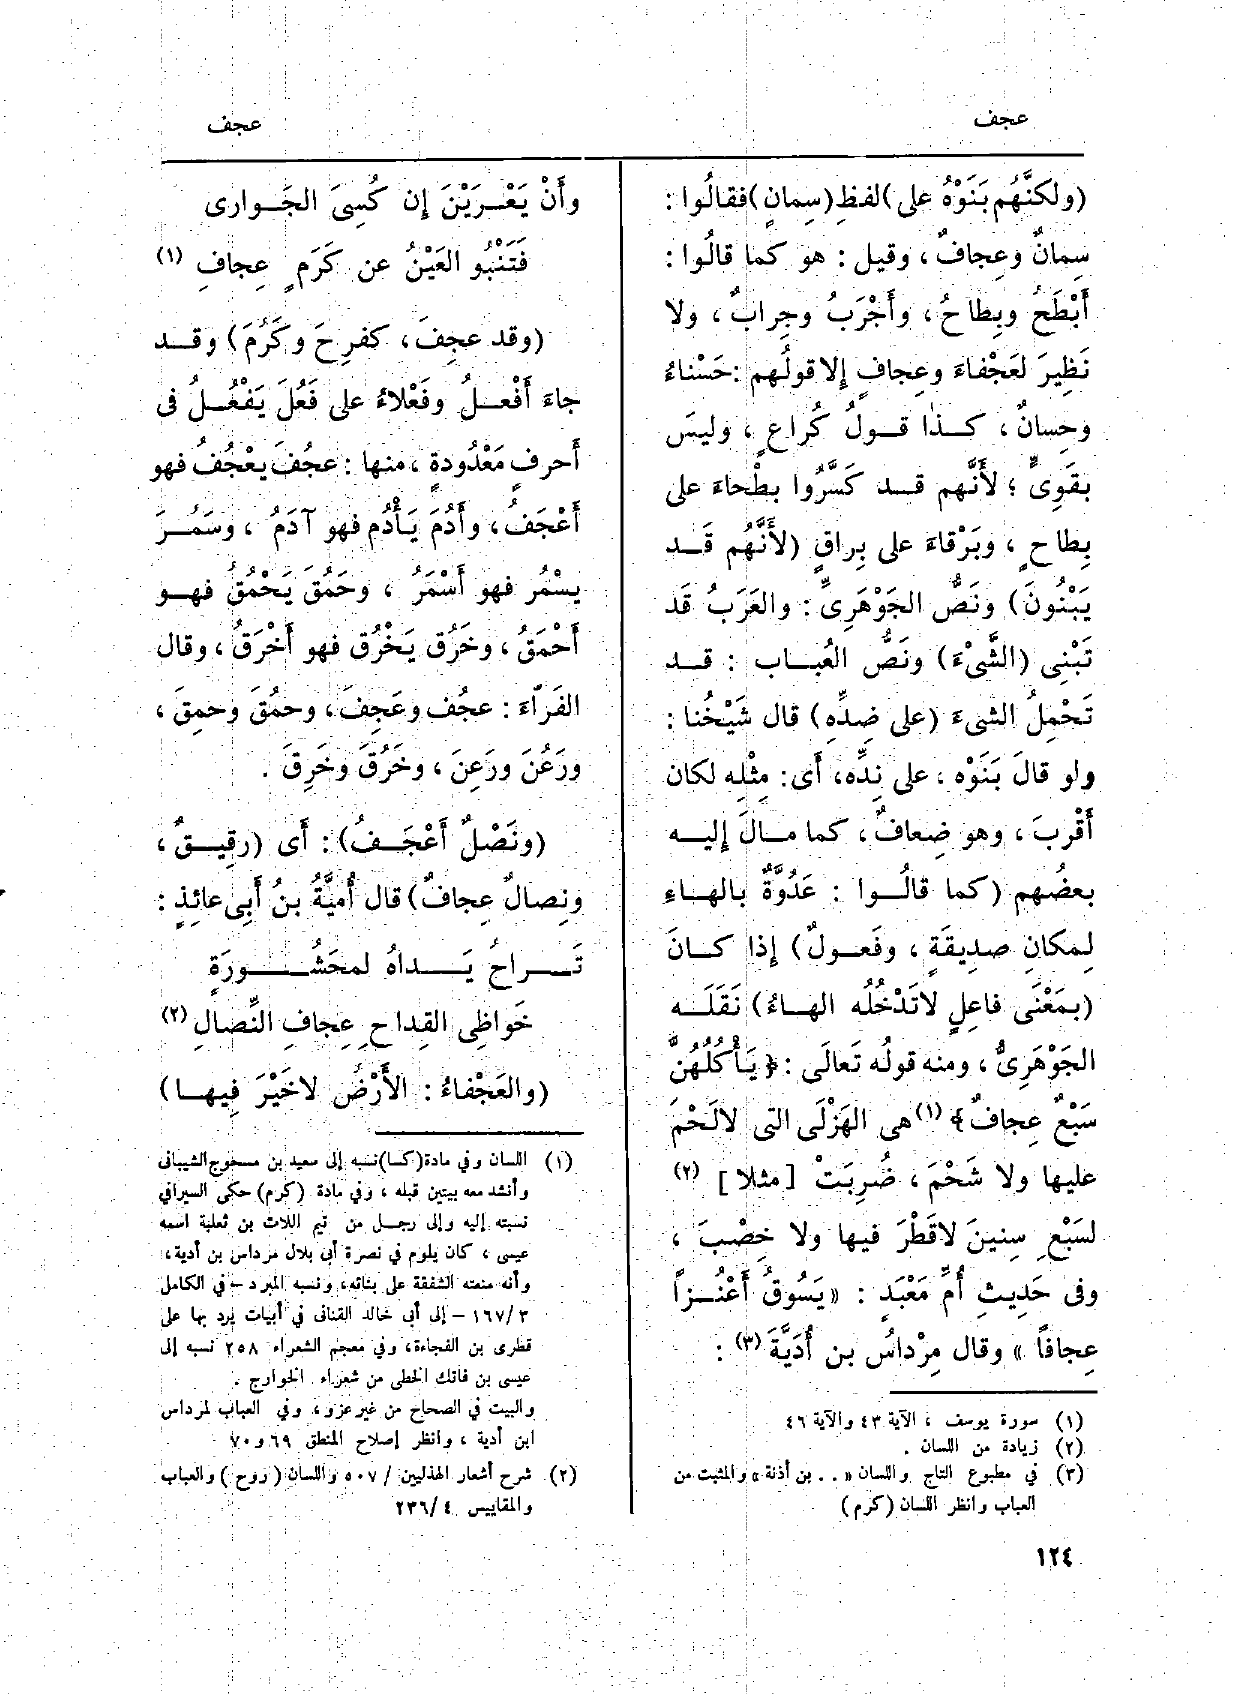 عجف
عجف
(ولكنَّهُم بَنَوْهُ على) لفظِ (سِمانٍ) فقالُوا :
سِمانٌ وعِجافٌ ، وقيل : هو كما قالُوا :
أَبْطَحُ وبِطاحٌ ، وأَجْرَبُ وجِرابٌ ، ولا
نَظِيرَ لعَجْفاءَ وعِجافٍ إلا قولُهم : حَسْناءُ
وحِسانٌ ، كـذا قـولُ كُراعٍ ، وليسَ
بقَوِىٍّ ؛ لأَنَّهم قـد كَسَّرُوا بطْحاءَ على
بِطاحٍ ، وبَرْقاءَ على بِراقٍ (لأَنَّهُم قَـد
يَبْنُونَ) ونَصُّ الجَوْهَرِىِّ : والعَرَبُ قَد
تَبْنِى (الشَّىْءَ) ونَصُّ العُبـاب : قـد
تَحْمِلُ الشىءَ (على ضِدِّهِ) قال شَيْخُنا :
ولو قالَ بَنَوْه ، على نِدِّه، أَى: مِثْلِه لكان
أَقْربَ ، وهو ضِعافٌ، كما مـالَ إليـه
بعضُهم (كما قالُـوا : عَدُوَّةٌ بالهـاءِ
لِمكانِ صدِيقَةٍ ، وفَعولٌ) إِذا كـانَ
(بمَعْنَى فاعِلٍ لاتَدْخُلُه الهـاءُ) نَقَلَـه
الجَوْهَرِىُّ ، ومنه قولُه تَعالَى : ﴿يَأْكُلُهُنَّ
سَبْعٌ عِجافٌ﴾ (١) هى الهَزْلَى التى لالَحْمَ
عليها ولا شَحْمَ ، ضُرِبَتْ [ مثلا ] (٢)
لسَبْعِ سِنِينَ لاقَطْرَ فيها ولا خِصْبَ ،
وفى حَدِيثِ أُمِّ مَعْبَدٍ : «يَسُوقُ أَعْنُـزاً
عِجافًا» وقال مِرْداسُ بن أُدَيَّةَ (٣) :
(١) سورة يوسف ، الآية ٤٣ والآية ٤٦
(٢) زيادة من اللسان .
(٣) في مطبوع التاج واللسان « . . بن أذنة » والمثبت من
العباب وانظر اللسان (كرم)
وأَنْ يَعْـرَيْنَ إِن كُسِىَ الجَـوارى
فَتَنْبُو العَيْنُ عن كَرَمٍ عِجافِ (١)
(وقد عجِفَ، كفرِحَ وكَرُمَ) وقـد
جاءَ أَفْعـلُ وفَعْلاءُ على فَعُلَ يَفْعُـلُ فى
أَحرفٍ مَعْدُودةٍ ، منها : عجُفَ يعْجُفُ فهو
أَعْجَفُ، وأَدُمَ يَأْدُم فهو آدَمُ ، وسَمُـرَ
يسْمُر فهو أَسْمَرُ ، وحَمُقَ يَحْمُقُ فهـو
أَحْمَقُ ، وخَرُق يَخْرُق فهو أَخْرَقُ ، وقال
الفَرّاءَ : عجُف وعَجِفَ، وحمُقَ وحمِقَ ،
ورَعُنَ ورَعِنَ ، وخَرُقَ وخَرِقَ .
(ونَصْلٌ أَعْجَـفُ) : أَى (رقِيـقٌ ،
ونِصالٌ عِجافٌ) قال أُمَيَّةُ بنُ أَبِى عائِذٍ :
تَـراحُ يَـداهُ لمحْشُـورَةٍ
خَواظِى القِداحِ عِجافِ النِّصالِ (٢)
(والعَجْفاءُ : الأَرْضُ لاخَيْرَ فِيهـا)
(١) اللسان وفي مادة (كسا) نسبه إلى سعيد بن مسحوج الشيبانى
وأنشد معه بيتين قبله ، وفي مادة (كرم) حكى السيرافي
نسبته إليه وإلى رجـل من تيم اللات بن ثعلبة اسمه
عيسى ، كان يلوم في نصرة أبى بلال مرداس بن أدية،
وأنه منعته الشفقة على بناته، ونسبه المبرد – في الكامل
٣ /١٦٧ – إلى أبى خالد القنانى في أبيات يرد بها على
قطرى بن الفجاءة، وفي معجم الشعراء ٢٥٨ نسبه إلى
عيسى بن فاتك الخطى من شعراء الخوارج .
والبيت في الصحاح من غير عزو، وفي العباب لمرداس
ابن أدية ، وانظر إصلاح المنطق ٦٩ و ٧٠
(٢) شرح أشعار الهذليين / ٥٠٧ واللسان (روح) والعباب
والمقاييس ٤ /٢٣٦
١٢٤